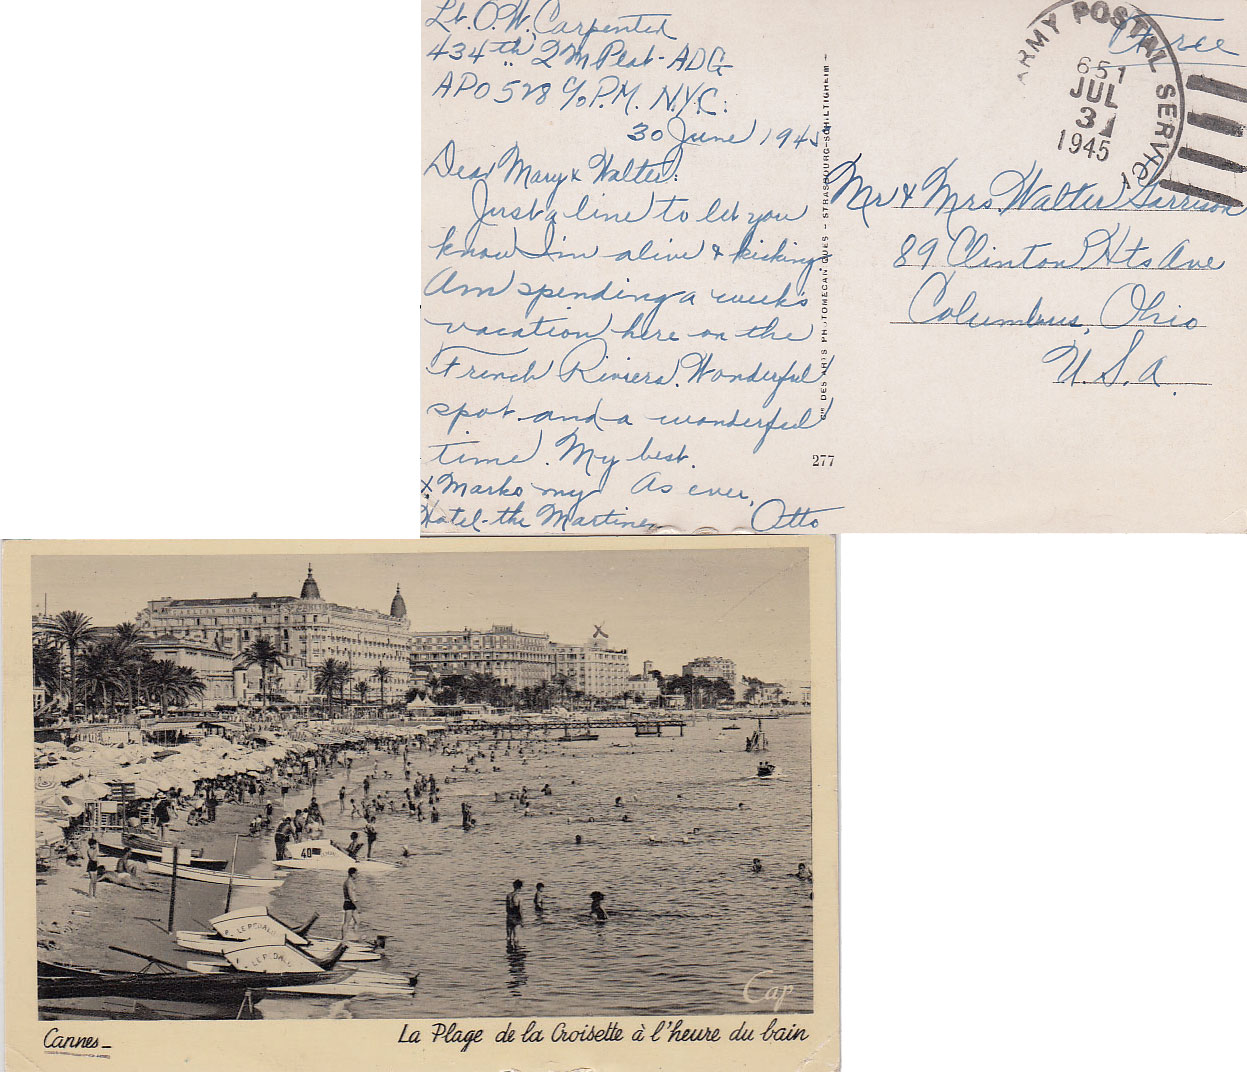 Lt. O.W. Carpenter
434th QM Plat-ADG
APO 528 c/o P.M. N.Y.C.
30 June 1945
Dear Mary & Walter:
Just a line to let you
know I'm alive & kicking
Am spending a week's
vacation here on the
French Riviera. Wonderful
spot and a wonderful
time. My best.
As ever,
Otto
X Marks my
Hotel-the Martinez
277
Cie DES ARTS PHOTOMECANIQUES - STRASBOURG-SCHILTIGHEIM -
ARMY POSTAL SERVICE
651
JUL
3
1945
Free
Mr & Mrs. Walter Garrison
89 Clinton Hts Ave
Columbus, Ohio
U.S.A.
CARLTON HOTEL
X
40
LE PEDALO
LE PEDALO
Cap
Cannes_
La Plage de la Croisette à l'heure du bain